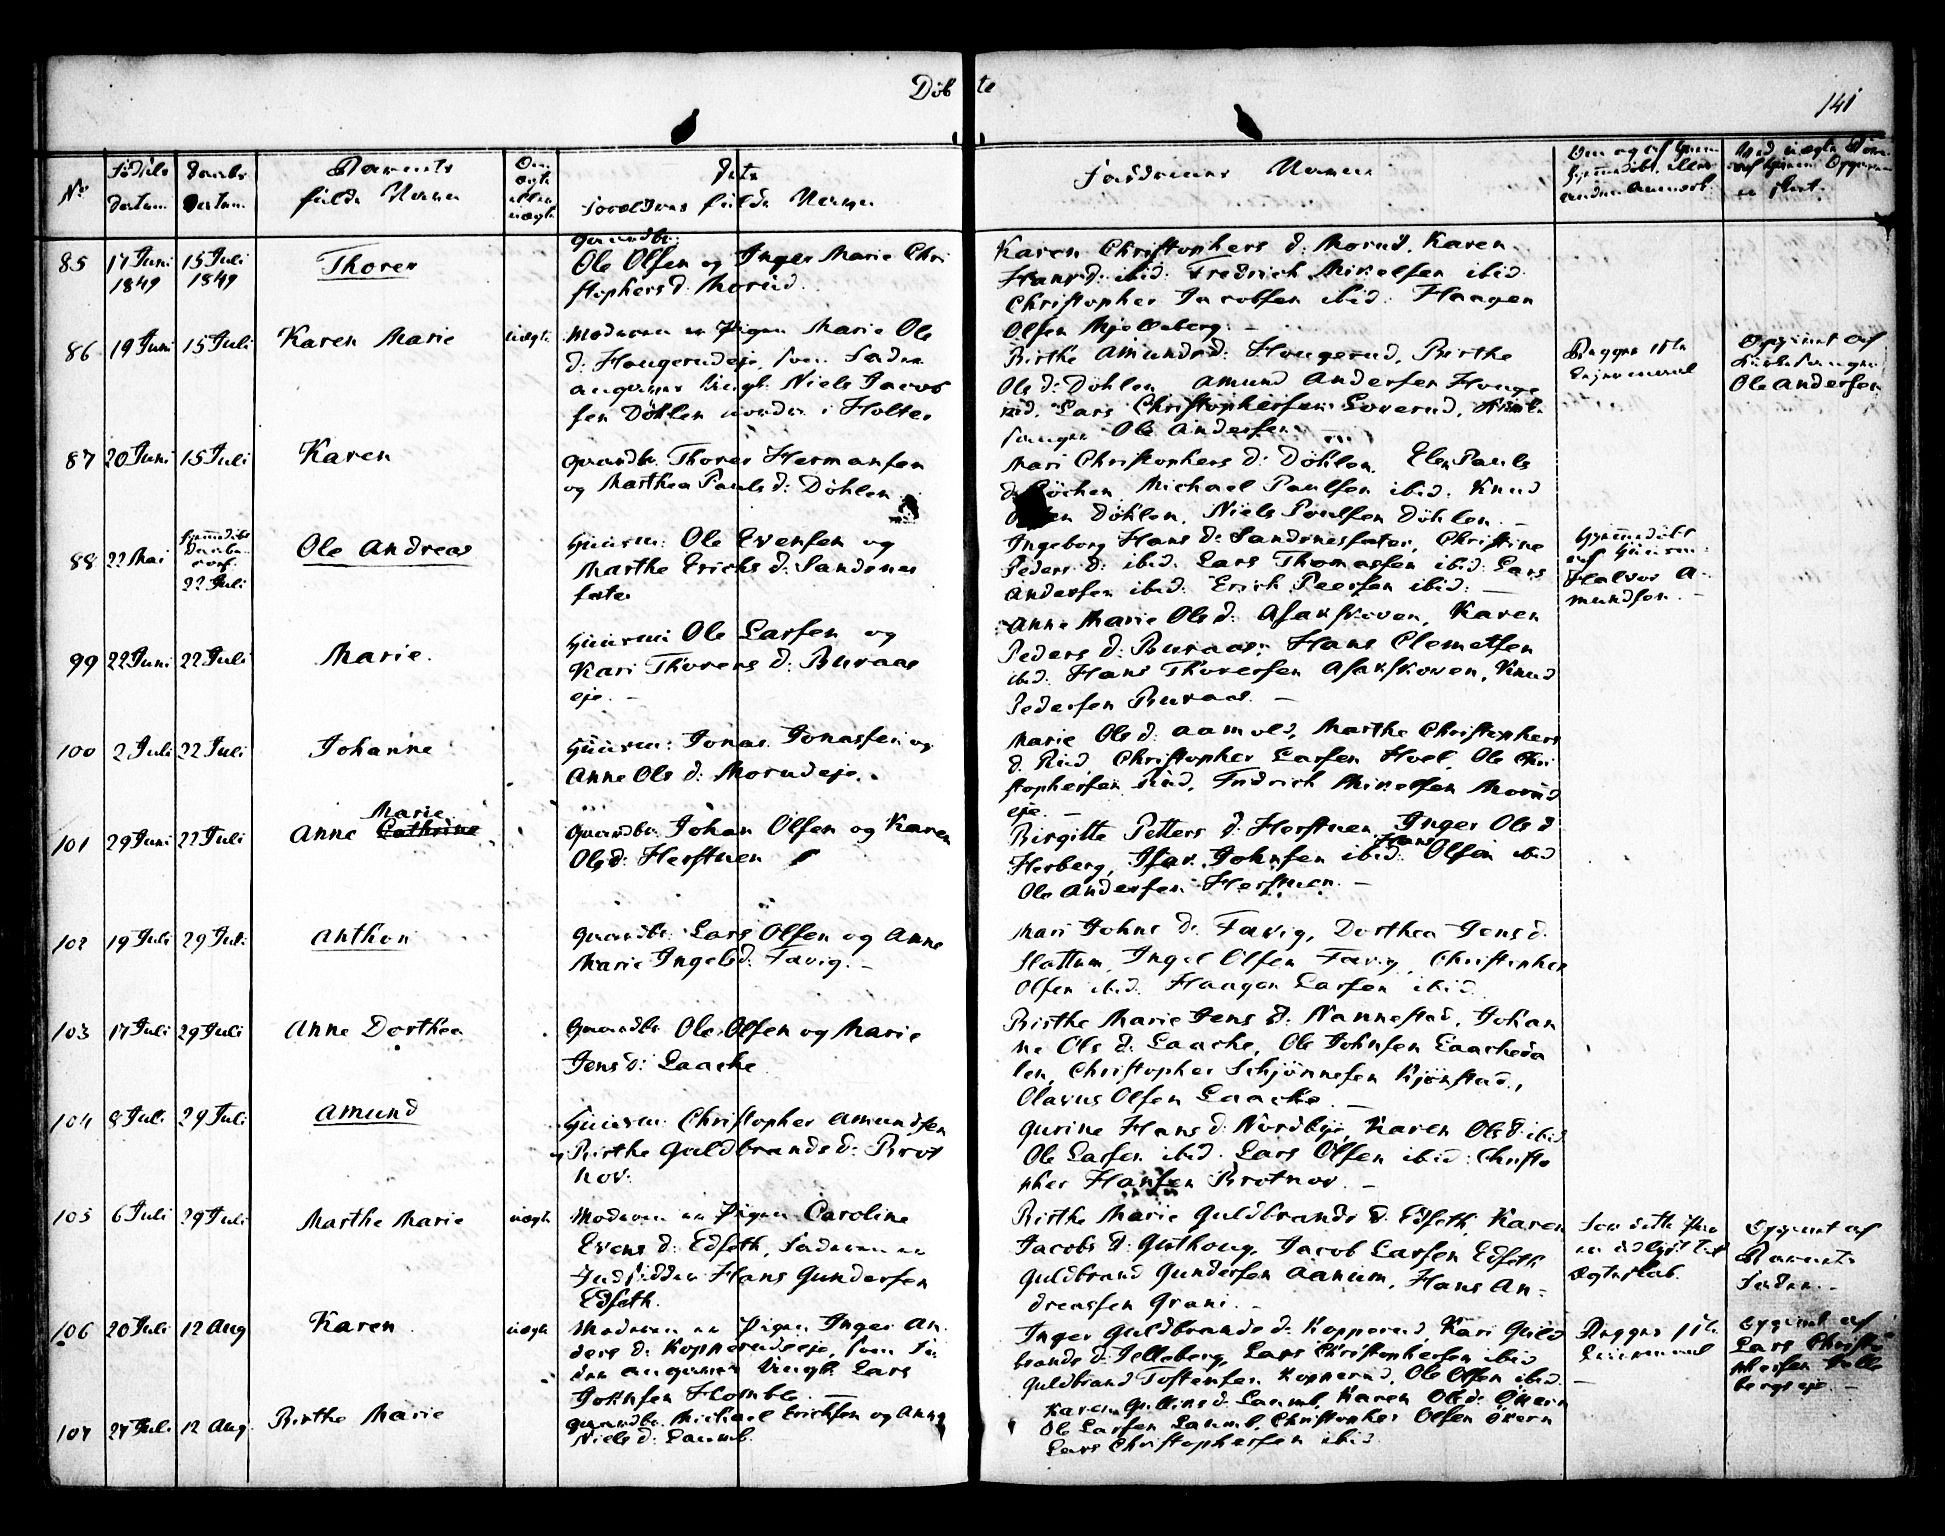 Døbte
141
No
Fødsels Datum
Daabs Datum
Barnets fulde Navn
Om ægte eller uægte
Dets Forældres fulde Navne
Faddernes Navne
85 17 Juni 1849 15 Juli 1849 Thorer
Gaardbr.
Ole Olsen og Inger Marie Chri
stophersd: Morud.
Karen Christophers d. Morud, Karen
Hansd: ibid. Fredrich Mikelsen ibid.
Christopher Jacobsen ibid. Haagen
Olsen Mjelleberg. -
86 19 Juni 15 Juli Karen Marie uægte
Moderen er Pigen Marie Ole
d: Hougerudeje, som Fader
angiver Ungk: Niels Jacob
sen Døhlen nordre i Holter
Birthe Amundsd: Hougerud, Birthe
Ols d: Døhlen Amund Andersen Houge
rud, Lars Christophersen Loverud,
sanger Ole Andersen.
Opgivet af
Kirkesanger
Ole Andersen
87 20 Juni 15 Juli Karen
Gaardbr. Thorer Hermansen
og Marthea Pauls d: Døhlen
Mari Christophers d: Døhlen. Elen Pauls
Michael Paulsen ibid. Knud
Døhlen, Niels Poulsen Døhlen. -
88 22 Mai 22 Juli Ole Andreas
Huusm: Ole Evensen og
Marthe Erichs d: Sandnes
fater
Ingeborg Hans d: Sandnesfater, Christine
Peders d: ibid. Lars Thomassen ibid. Lars
Andersen ibid. Erich Peersen ibid. -
Hjemmedøbt
af Huusm:
Halvor A-
mundsen. -
99 22 Juni 22 Juli Marie.
Huusm: Ole Larsen og
Kari Thorers d: Buraas
eje. -
Anne Marie Ols d: Asakskoven, Karen
Peders d: Buraas, Hans Clemetsen
ibid. Hans Thorersen Asakskoven, Knud
Pedersen Buraas. -
100 2 Juli 22 Juli Johanne
Huusm: Jonas Jonassen og
Anne Ols d: Morudeje.
Marie Ols d: Aamold, Marthe Christophers
d. Rud Christopher Larsen Hvel, Ole Chri
stophersen Rud, Fridrich Mikelsen Morud
eje. -
101 29 Juni 22 Juli Anne Cathrine Marie
Gaardbr. Johan Olsen og Karen
Olsd: Herstuen
Birgitte Petters d: Herstuen, Inger Ols d
Herberg, Isak Johnsen ibid. Hans Olsen ibid
Ole Andersen Herstuen. -
102 19 Juli 29 Juli Anthon
Gaardbr. Lars Olsen og Anne
Marie Ingelsd: Favig. -
Mari Johns d. Favig, Dorthea Jens d.
Slattum, Ingel Olsen Favig, Christopher
Olsen ibid. Haagen Larsen ibid.
103 17 Juli 29 Juli Anne Dorthea
Gaardbr Ole Olsen og Marie
Jens d: Laache
Birthe Marie Jens d. Nannestad, Johan
ne Ols d: Laache, Ole Johnsen Laacheda
len, Christopher Schjønnesen Kjønstad,
Olavus Olsen Laache. -
104 8 Juli 29 Juli Amund
Huusm: Christopher Amundsen
og Birthe Guldbrands d: Brot
nov.
Gurine Hans d: Nordbye, Karen Ols d: ibid.
Ole Larsen ibid. Lars Olsen ibid: Christo
pher Hansen Brotnov. -
105 6 Juli 29 Juli Marthe Marie uægte
Moderen er Pigen Caroline
Evens d: Edseth, Faderen er
Indsidder Hans Gundersen
Edseth.
Birthe Marie Guldbrands d. Edseth, Karen
Jacobs d: Gisthoug, Jacob Larsen Edseth
Guldbrand Gundersen Aanum, Hans An-
dreassen Grani. -
Ægteskab.
Opgivet af
Barnets
Fader. -
106 20 Juli 12 Aug Karen uægte
Moderen er Pigen Inger An
ders d: Kopperudseje, som Fa
der angiver Ungk: Lars
Johnsen Homble. -
Inger Guldbrands d: Kopperud, Kari Guld
brands d: Jelleberg, Lars Christophersen ibid
Guldbrand Tostensen Kopperud, Ole Olsen ibid.
Opgivet af
Lars Christo
phersen Jelle
bergseje. -
107 27 Juli 12 Aug. Birthe Marie
Gaardbr. Michael Erichsen og Anne
Niels d: Laumb.
Karen Gullins d: Laumb, Karen Ols d: Økern
Ole Larsen Laumb, Christopher Olsen Økern
Lars Christophersen ibid.